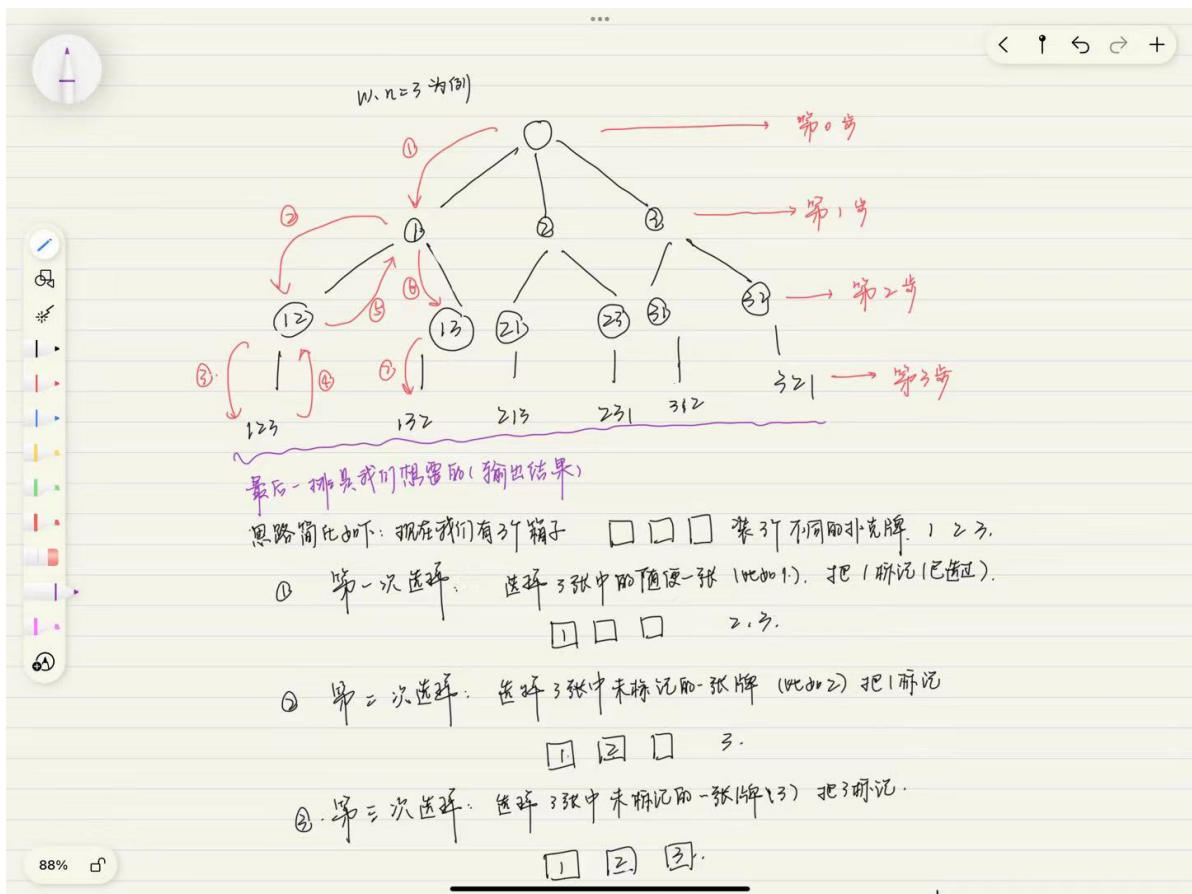 以n=3为例
第0步
①
② 1 2 3 第1步
12 ⑤ ⑥ 13 21 23 31 32 第2步
③ ④ ⑦ 321 第3步
123 132 213 231 312
最后一排是我们想要的(输出结果)
思路简化如下:现在我们有3个箱子 装3个不同的扑克牌. 1 2 3.
① 第一次选择: 选择3张中的随便一张(比如1.). 把1标记(已选过).
1 2,3.
② 第二次选择: 选择3张中未标记的一张牌(比如2)把1标记
1 2 3.
③.第三次选择: 选择3张中未标记的一张(牌3)把3标记.
1 2 3.
88%